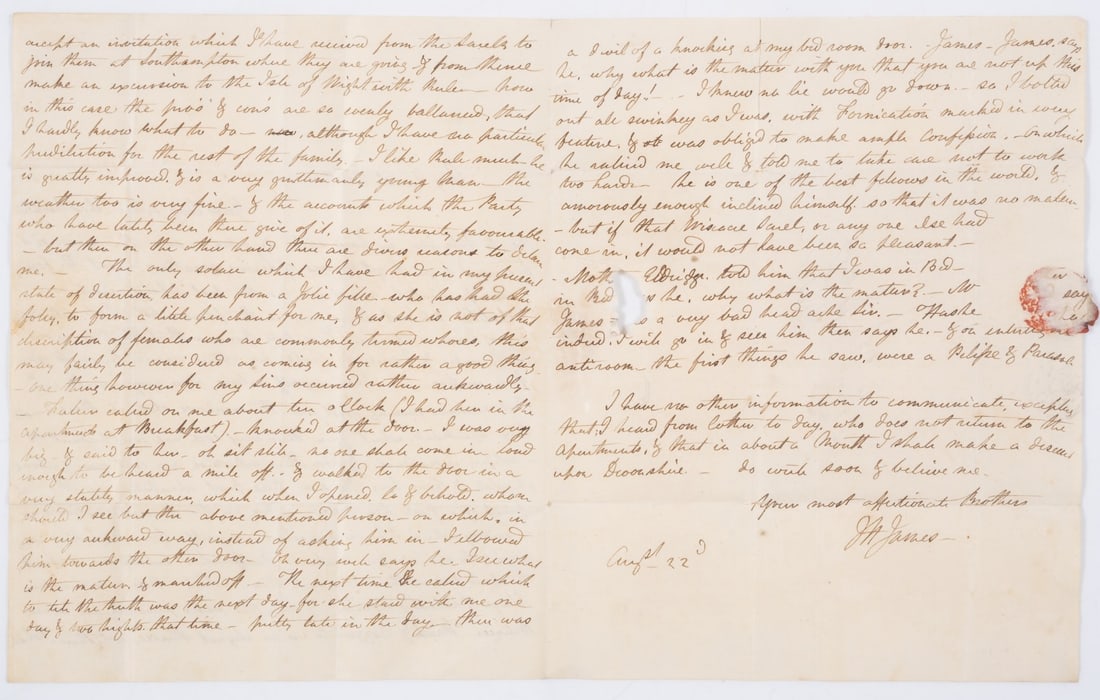 accept an invitation which I have received from the Sarels to
join them at Southampton where they are going & from thence
make an excursion to the Isle of Wight with Rule – how
in this case the pro's & con's are so evenly ballanced, that
I hardly know what to do – although I have no particular
predilection for the rest of the family. – I like Rule much he
is greatly improved, & is a very gentlemanly young Man – the
weather too is very fine – & the accounts which the Party
who have lately been there give of it, are extremely favourable.
– but then on the other hand there are divers reasons to
me. – The only solace which I have had in my present
state of desertion, has been from a Jolie fille – who has had the
folly, to form a little penchant for me, & as she is not of that
discription of females who are commonly termed whores, this
may fairly be considered as coming in for rather a good thing
– one thing however for my Sins occurred rather awkwardly –
– called on me about ten o'Clock (I had her in the
apartments at Breakfast) – knocked at the door – I was very
big – & said to her – oh sit still – no one shall come in loud
enough to be heard a mile off. – & walked to the door in a
very stately manner, which when I opened, lo & behold, whom
should I see but the above mentioned person – on which, in
a very awkward way, instead of asking him in – I elbowed
him towards the other door – Oh very well says he I see what
is the matter & marched off – The next time he called which
to tell the truth was the next day – for she staid with me one
day & two nights that time – pretty late in the day – there was
a devil of a knocking at my bed room door. – James – James, says
he, why what is the matter with you that you are not up this
time of day! – I knew no lie would go down – so I bolted
out all swinkey as I was, with Fornication marked in every
feature, & was obliged to make ample confession. – on which
he rallied me well & told me to take care not to work
too hard – he is one of the best fellows in the world, &
amorously enough inclined himself. so that it was no matter –
– but if that Sarel, or any one else had
come in, it would not have been so pleasant. –
– told him that I was in Bed –
in Bed says he, why what is the matter? – Mr
James is a very bad head ache Sir. – Has he
indeed, I will go in & see him then says he. – & on entering
antiroom – the first things he saw, were a Pelisse & Parasol.
say
I have no other information to communicate, excepting
that I heard from to day, who does not return to the
Apartments, & that in about a Month I shall make a descent
upon Devonshire – do write soon & believe me –
Your most affectionate Brother
James – .
Augst 22d